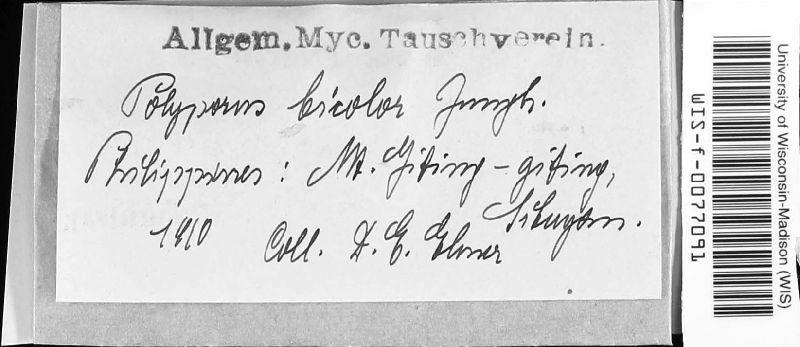 Allgem. Myc. Tauschverein.
Polyporus bicolor Jungh.
Philippines: Mt. Giting-giting,
Sibuyan.
1910 Coll. D. E. Elmer
University of Wisconsin-Madison (WIS)
WIS-f-0077091